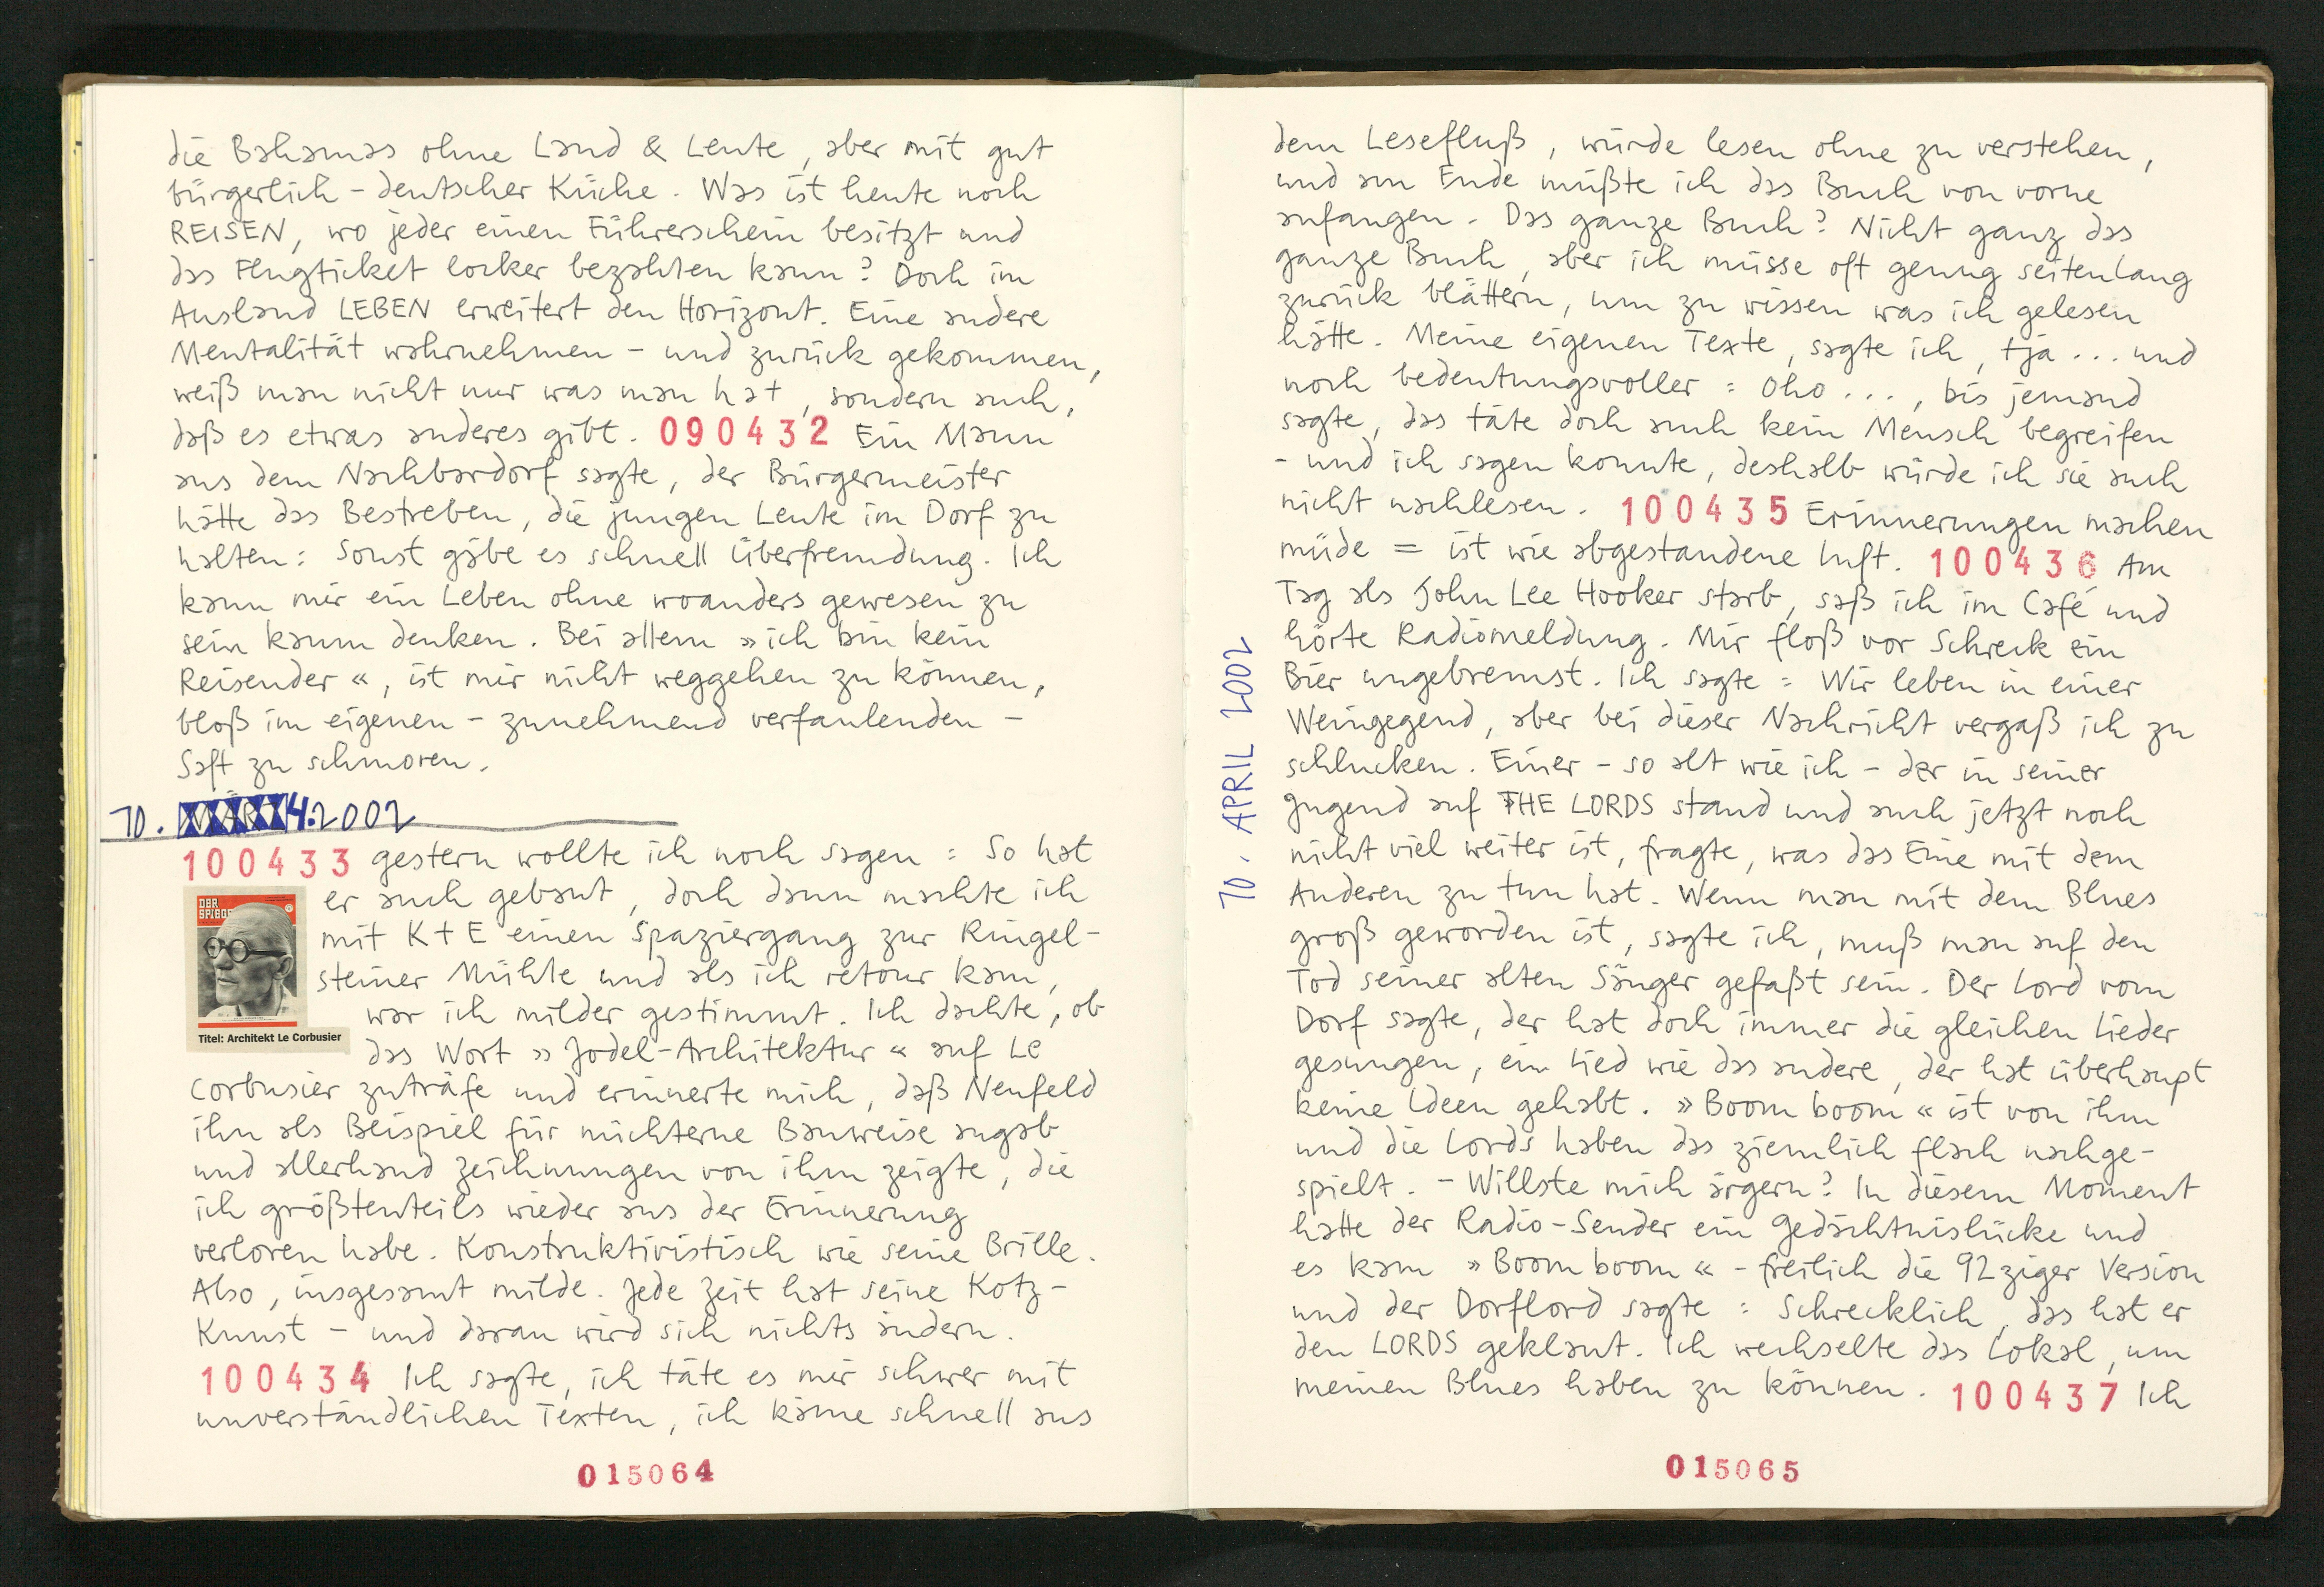 die Bahamas ohne Land & Leute, aber mit gut
bürgerlich-deutscher Küche. Was ist heute noch
REISEN, wo jeder einen Führerschein besitzt und
das Flugticket locker bezahlen kann? Doch im
Ausland LEBEN erweitert den Horizont. Eine andere
Mentalität wahrnehmen - und zurück gekommen,
weiß man nicht nur was man hat, sondern auch,
daß es etwas anderes gibt. 090432 Ein Mann
aus dem Nachbardorf sagte, der Bürgermeister
hätte das Bestreben, die jungen Leute im Dorf zu
halten: Sonst gäbe es schnell Überfremdung. Ich
kann mir ein Leben ohne woanders gewesen zu
sein kaum denken. Bei allem »ich bin kein
Reisender«, ist mir nicht weggehen zu können,
bloß im eigenen - zunehmend verfaulenden -
Saft zu schmoren.
10. 4.2002
100433 gestern wollte ich noch sagen: So hat
er auch gebaut, doch dann machte ich
mit K+E einen Spaziergang zur Ringel-
steiner Mühle und als ich retour kam,
war ich milder gestimmt. Ich dachte, ob
das Wort »Jodel-Architektur« auf Le
Corbusier zuträfe und erinnerte mich, daß Neufeld
ihn als Beispiel für nüchterne Bauweise angab
und allerhand Zeichnungen von ihm zeigte, die
ich größtenteils wieder aus der Erinnerung
verloren habe. Konstruktivistisch wie seine Brille.
Also, insgesamt milde. Jede Zeit hat seine Kotz-
Kunst - und daran wird sich nichts ändern.
100434 Ich sagte, ich täte es mir schwer mit
unverständlichen Texten, ich käme schnell aus
DER
SPIEGEL
Titel: Architekt Le Corbusier
015064
dem Lesefluß, würde lesen ohne zu verstehen,
und am Ende müßte ich das Buch von vorne
anfangen. Das ganze Buch? Nicht ganz das
ganze Buch, aber ich müsse oft genug seitenlang
zurück blättern, um zu wissen was ich gelesen
hätte. Meine eigenen Texte, sagte ich, tja... und
noch bedeutungsvoller: Oho..., bis jemand
sagte, das täte doch auch kein Mensch begreifen
- und ich sagen konnte, deshalb würde ich sie auch
nicht nachlesen. 100435 Erinnerungen machen
müde = ist wie abgestandene Luft. 100436 Am
Tag als John Lee Hooker starb, saß ich im Café und
hörte Radiomeldung. Mir floß vor Schreck ein
Bier ungebremst. Ich sagte: Wir leben in einer
Weingegend, aber bei dieser Nachricht vergaß ich zu
schlucken. Einer - so alt wie ich - der in seiner
Jugend auf THE LORDS stand und auch jetzt noch
nicht viel weiter ist, fragte, was das Eine mit dem
Anderen zu tun hat. Wenn man mit dem Blues
groß geworden ist, sagte ich, muß man auf den
Tod seiner alten Sänger gefaßt sein. Der Lord vom
Dorf sagte, der hat doch immer die gleichen Lieder
gesungen, ein Lied wie das andere, der hat überhaupt
keine Ideen gehabt. »Boom boom« ist von ihm
und die Lords haben das ziemlich flach nachge-
spielt. - Willste mich ärgern? In diesem Moment
hatte der Radio-Sender ein Gedächtnislücke und
es kam »Boom boom« - freilich die 92ziger Version
und der Dorflord sagte: Schrecklich, das hat er
den LORDS geklaut. Ich wechselte das Lokal, um
meinen Blues haben zu können. 100437 Ich
10. APRIL 2002
015065